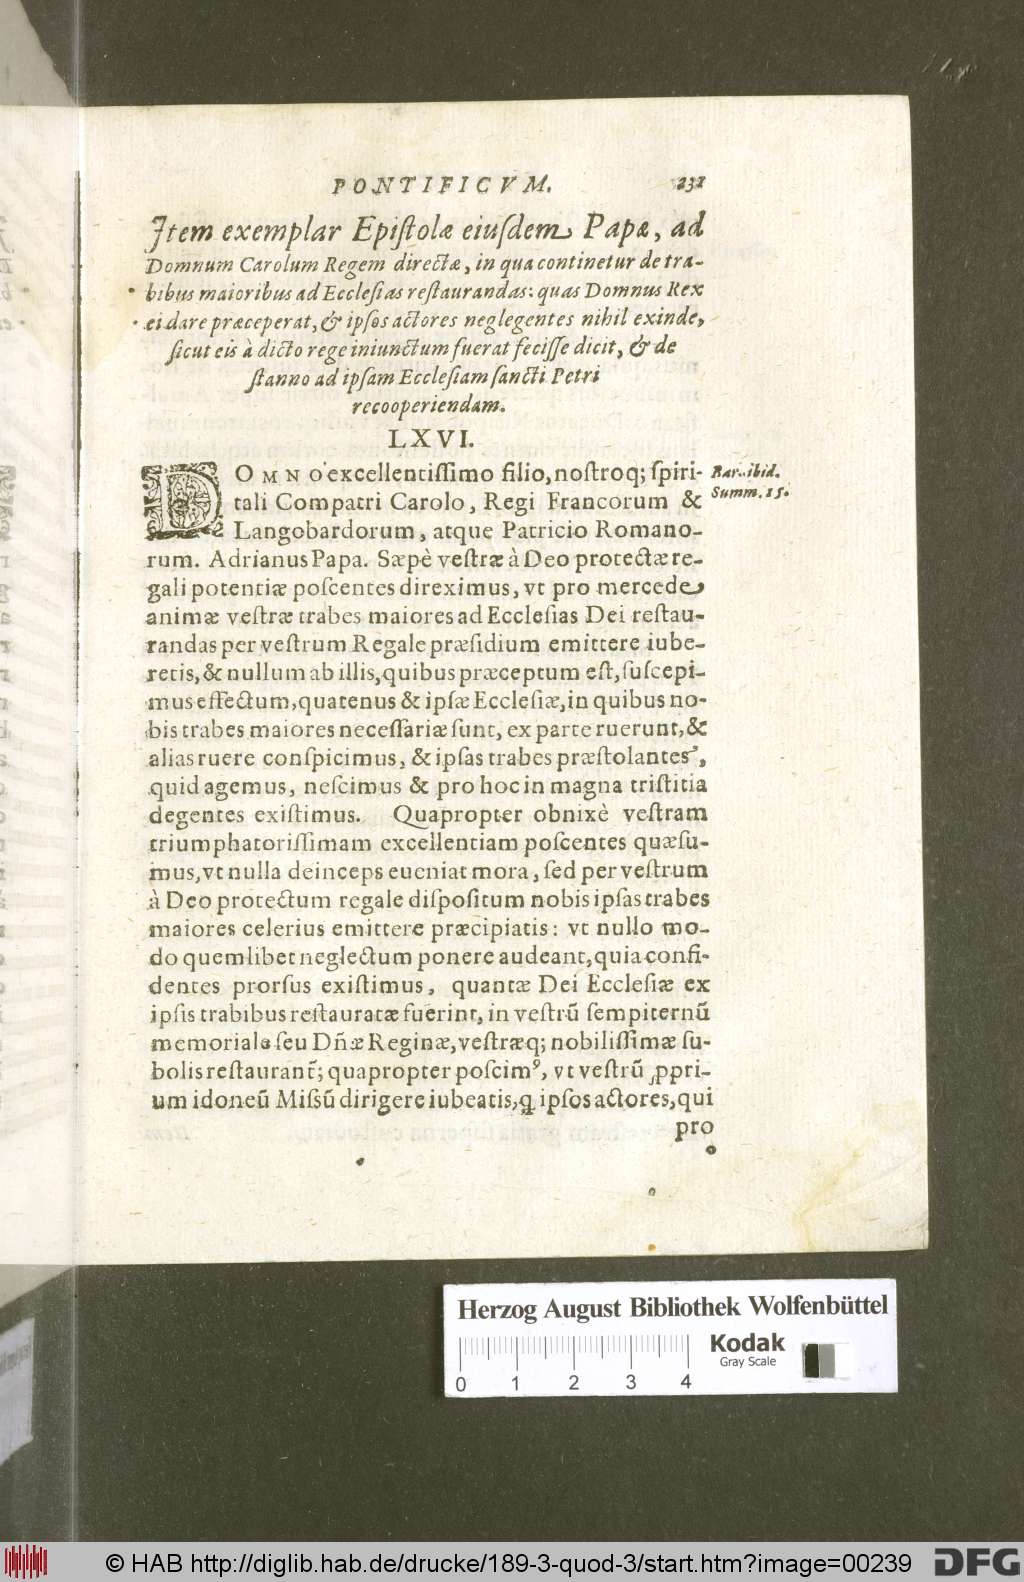 PONTIFICVM. 231
Item exemplar Epistolæ eiuſdem Papæ, ad
Domnum Carolum Regem directæ, in qua continetur de tra-
bibus maioribus ad Eccleſias reſtaurandas: quas Domnus Rex
ei dare præceperat, & ipſos actores neglegentes nihil exinde,
ſicut eis à dicto rege iniunctum fuerat feciſſe dicit, & de
ſtanno ad ipſam Eccleſiam ſancti Petri
recooperiendam.
LXVI.
DOMNO excellentiſſimo filio, noſtroq; ſpiri-
tali Compatri Carolo, Regi Francorum &
Langobardorum, atque Patricio Romano-
rum. Adrianus Papa. Sæpè veſtræ à Deo protectæ re-
gali potentiæ poſcentes direximus, vt pro mercede
animæ veſtræ trabes maiores ad Eccleſias Dei reſtau-
randas per veſtrum Regale præſidium emittere iube-
retis, & nullum ab illis, quibus præceptum eſt, ſuſcepi-
mus effectum, quatenus & ipſæ Eccleſiæ, in quibus no-
bis trabes maiores neceſſariæ ſunt, ex parte ruerunt, &
alias ruere conſpicimus, & ipſas trabes præſtolantes,
quid agemus, neſcimus & pro hoc in magna triſtitia
degentes exiſtimus. Quapropter obnixè veſtram
triumphatoriſſimam excellentiam poſcentes quæſu-
mus, vt nulla deinceps eueniat mora, ſed per veſtrum
à Deo protectum regale diſpoſitum nobis ipſas trabes
maiores celerius emittere præcipiatis: vt nullo mo-
do quemlibet neglectum ponere audeant, quia confi-
dentes prorſus exiſtimus, quantæ Dei Eccleſiæ ex
ipſis trabibus reſtauratæ fuerint, in veſtrū ſempiternū
memoriale ſeu Dñæ Reginæ, veſtræq; nobiliſſimæ ſu-
bolis reſtaurant̃; quapropter poſcimꝰ, vt veſtrū ꝓpri-
um idoneū Miſsū dirigere iubeatis, q̃ ipſos actores, qui
pro
Bar. ibid.
Summ. 15.
Herzog August Bibliothek Wolfenbüttel
0 1 2 3 4
Kodak
Gray Scale
© HAB http://diglib.hab.de/drucke/189-3-quod-3/start.htm?image=00239
DFG